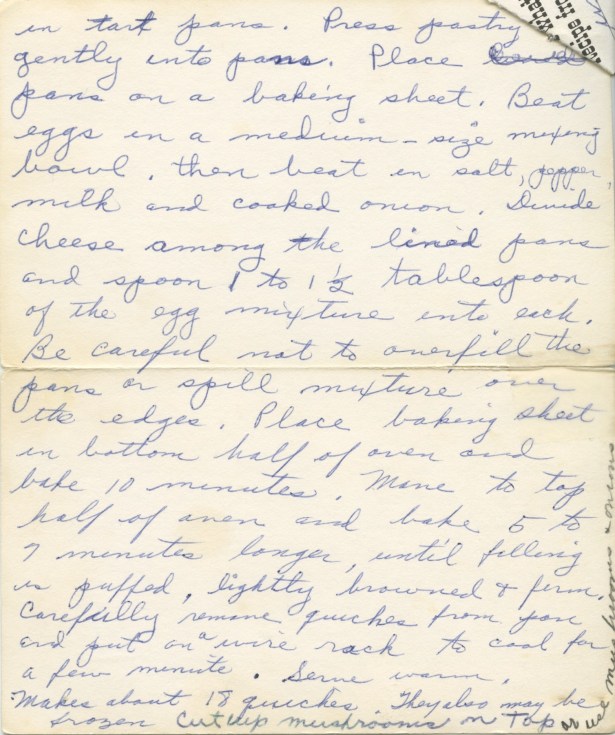 in tart pans. Press pastry
gently into pans. Place
pans on a baking sheet. Beat
eggs in a medium-size mixing
bowl, then beat in salt, pepper,
milk and cooked onion. Divide
cheese among the lined pans
and spoon 1 to 1 ½ tablespoon
of the egg mixture into each.
Be careful not to overfill the
pans or spill mixture over
the edges. Place baking sheet
in bottom half of oven and
bake 10 minutes. Move to top
half of oven and bake 5 to
7 minutes longer, until filling
is puffed, lightly browned & firm.
Carefully remove quiches from pan
and put on a wire rack to cool for
a few minute. Serve warm.
Makes about 18 quiches. They also may be
frozen Cut up mushrooms on Top or use
mushrooms & onions
recipe